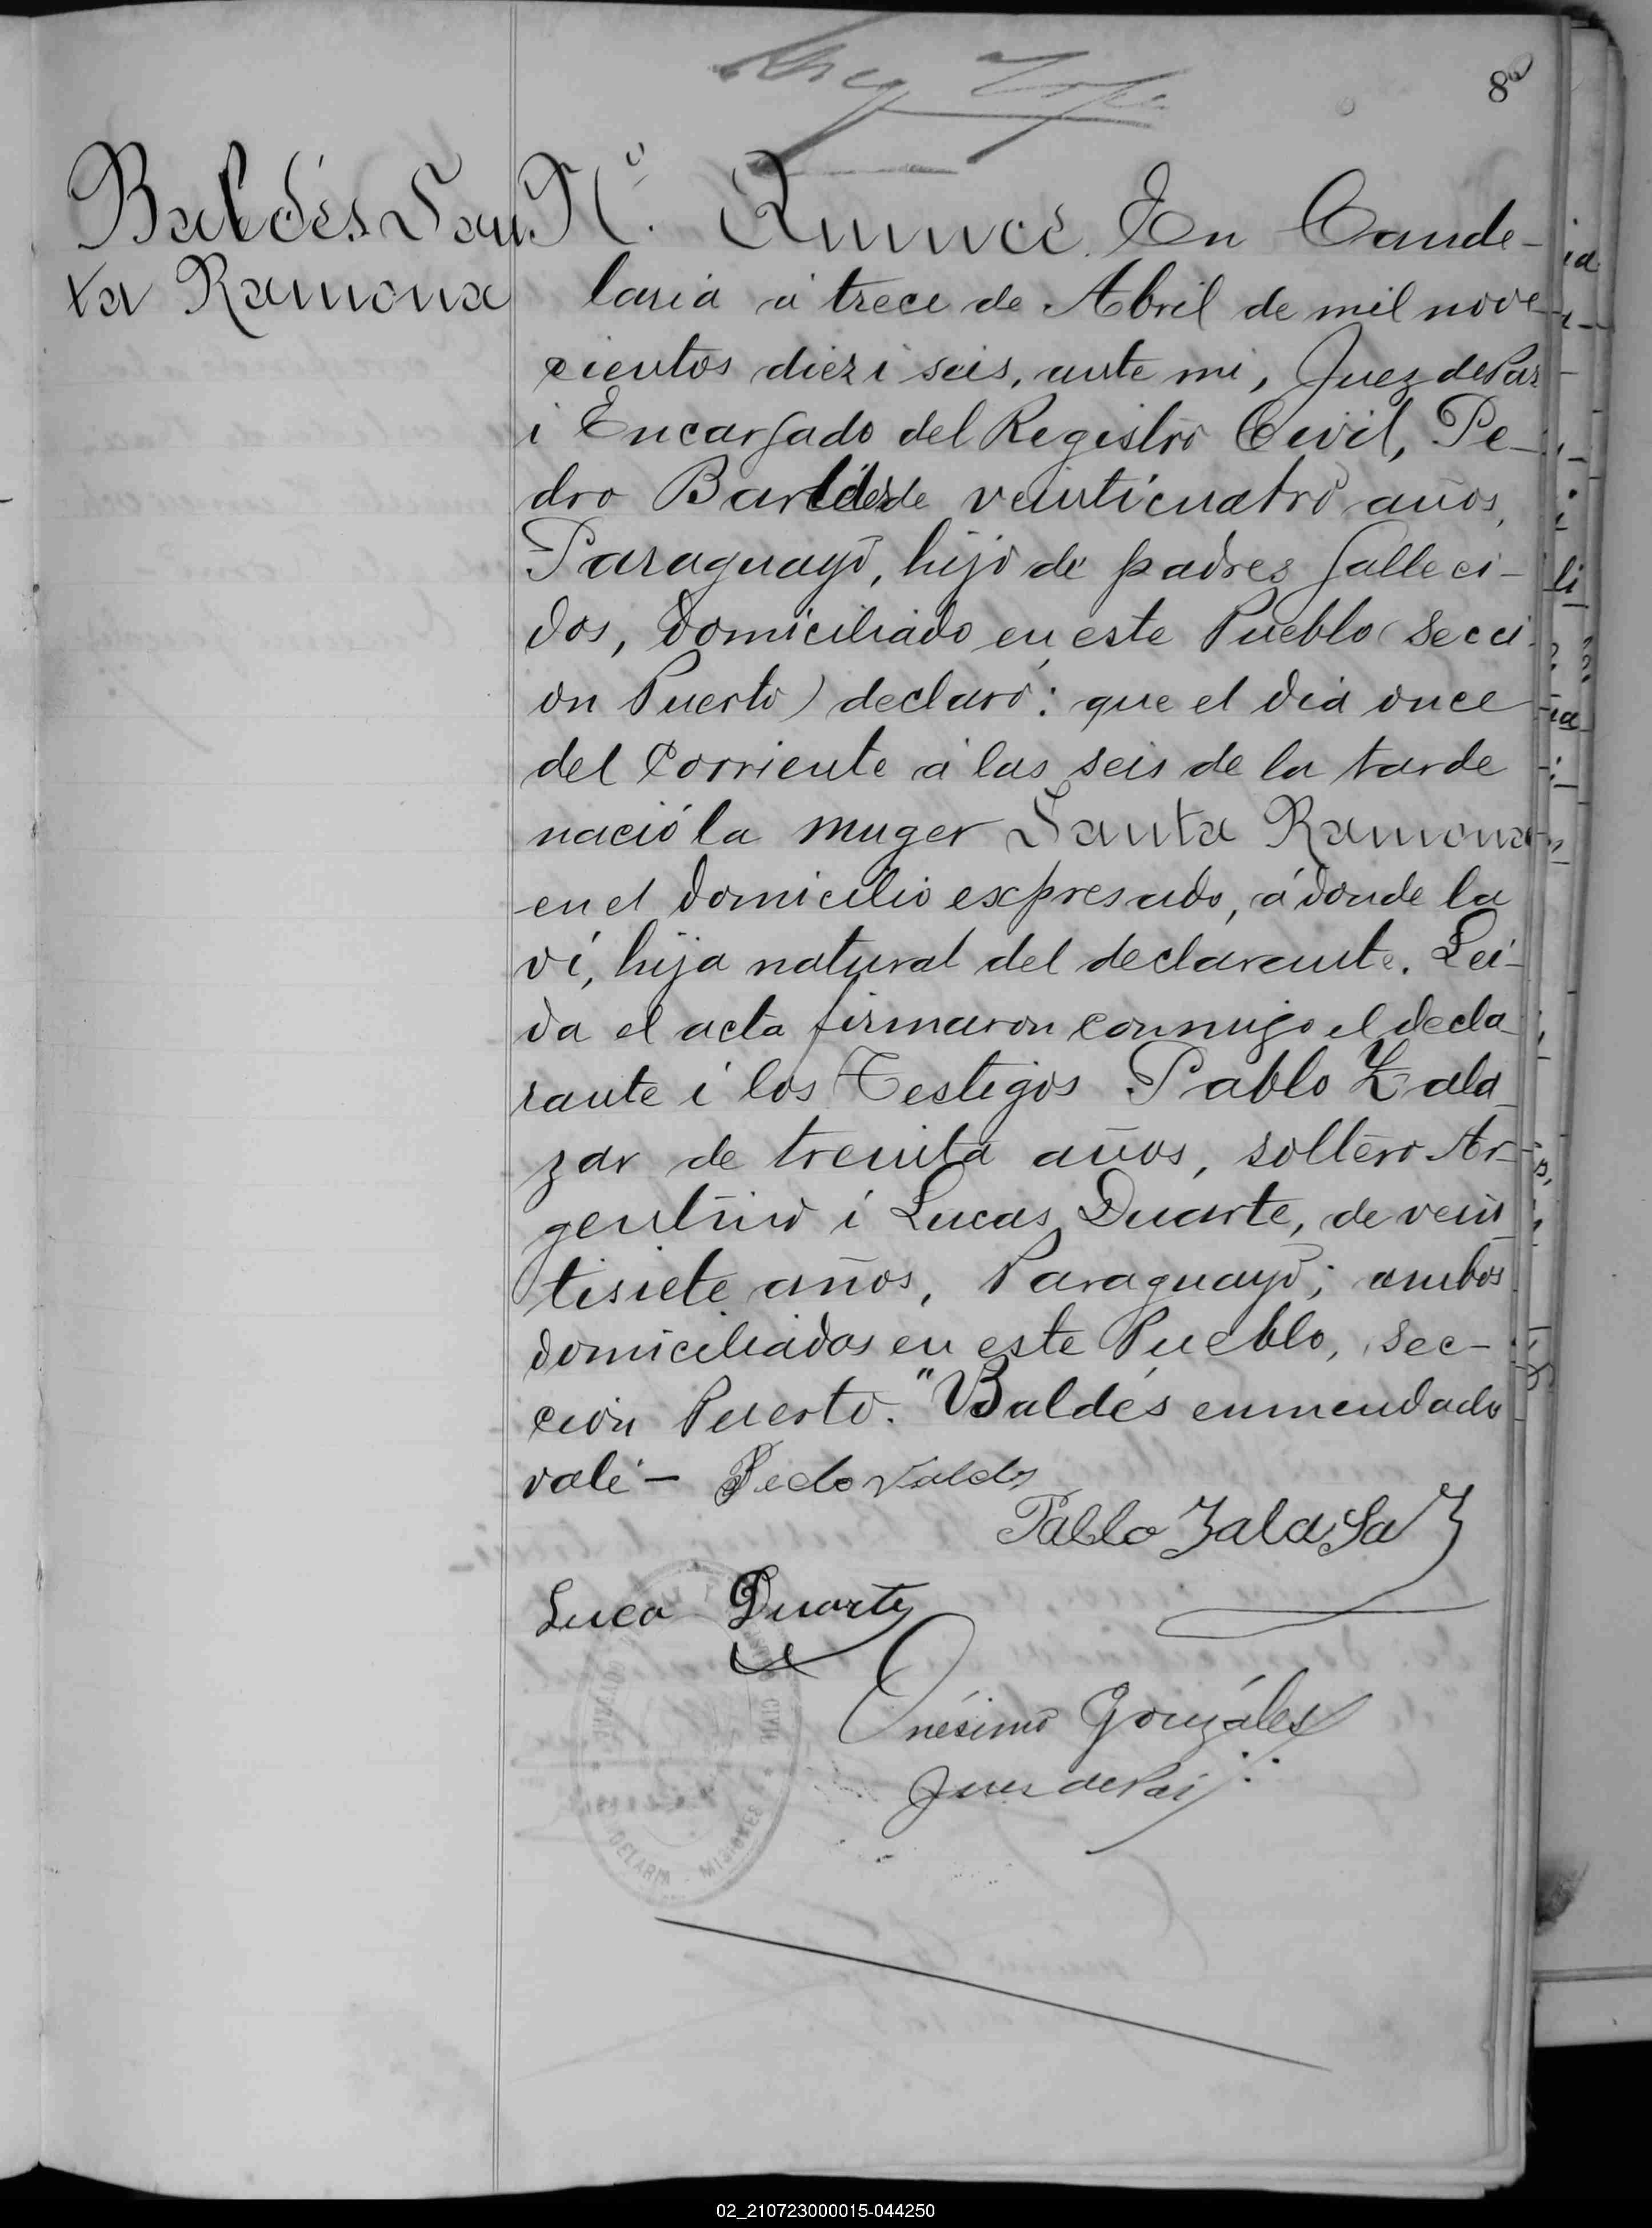 8
Baldés San
ta Ramona
Nº. Quince. En Cande-
laria á trece de Abril de mil nove
cientos diez i seis, ante mi, Juez de Paz
i Encargado del Registro Civil, Pe-
dro Baldés de veinticuatro años,
Paraguayo, hijo de padres falleci-
dos, domiciliado en este Pueblo (secci-
on Puerto) declaró: que el dia once
del Corriente á las seis de la tarde
nació la muger Santa Ramona
en el domicilio expresado, á donde la
ví, hija natural del declarante. Lei-
da el acta firmaron conmigo el decla
rante i los Testigos Pablo Zala
zar de treinta años, soltero Ar-
gentino i Lucas Duarte, de vein
tisiete años, Paraguayo; ambos
domiciliados en este Pueblo, sec-
cion Puerto. "Baldés enmendado
vale - Pedo Valdes
Pablo Zalasar
Luca Duarte
Onésimo Gonzáles
Juez de Paz
CIVIL
DELARIA - MISIONES
02_210723000015-044250